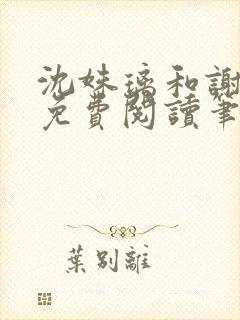 沈妹璃和謝
免費閱讀筆
葉別離